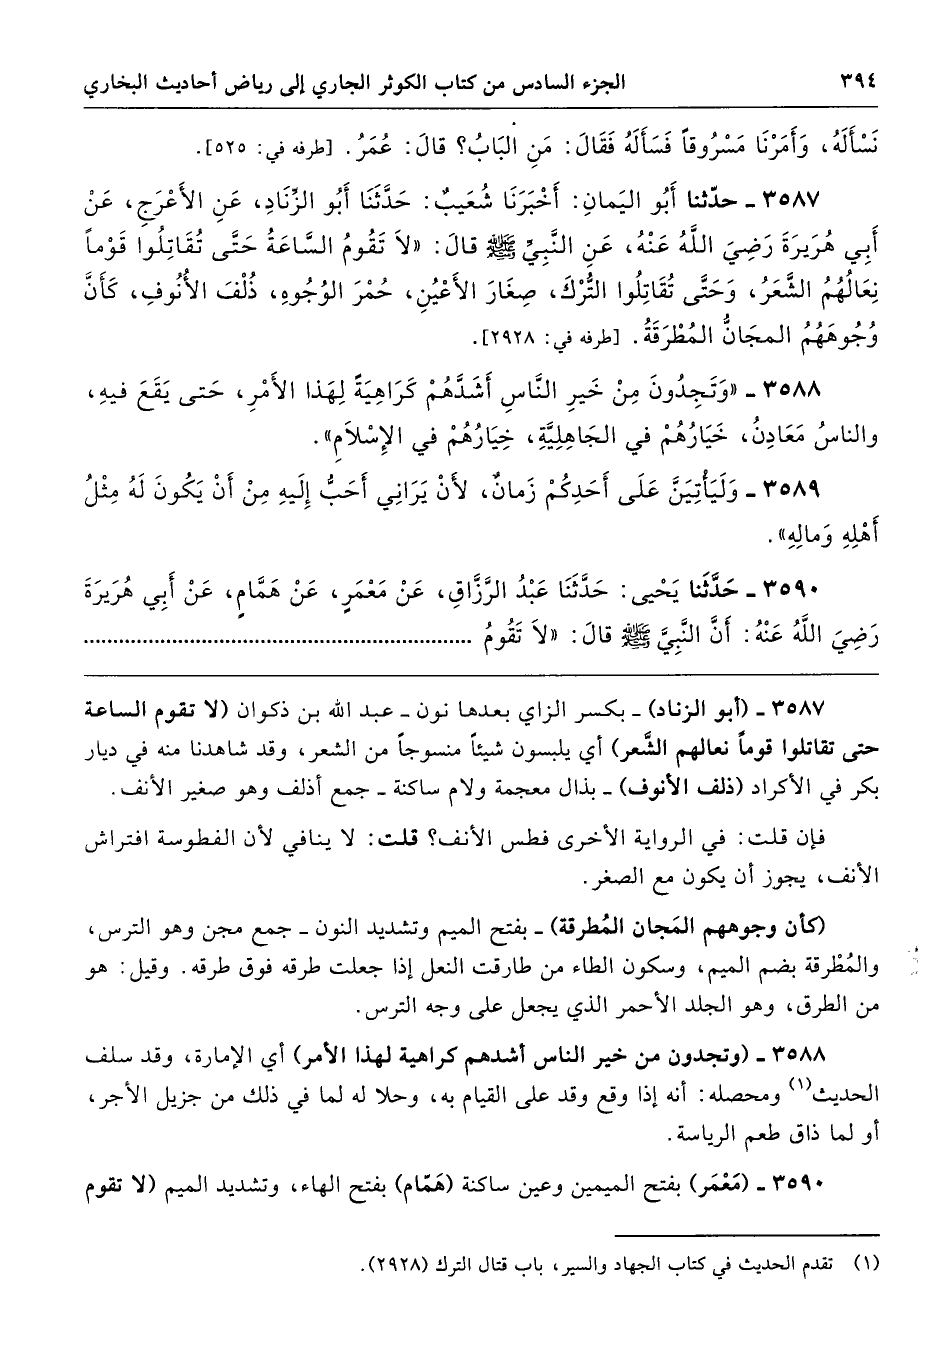 ٣٩٤ الجزء السادس من كتاب الكوثر الجاري إلى رياض أحاديث البخاري
نَسْأَلَهُ، وَأَمَرْنَا مَسْرُوقاً فَسَأَلَهُ فَقَالَ: مَنِ الْبَابُ؟ قالَ: عُمَرُ. [طرفه في: ٥٢٥].
٣٥٨٧ ـ حدّثنا أَبُو اليَمانِ: أَخْبَرَنَا شُعَيبٌ: حَدَّثَنَا أَبُو الزِّنَادِ، عَنِ الأَعْرَجِ، عَنْ
أَبِي هُرَيرَةَ رَضِيَ اللَّهُ عَنْهُ، عَنِ النَّبِيِّ ﷺ قالَ: «لاَ تَقُومُ السَّاعَةُ حَتَّى تُقَاتِلُوا قَوْماً
نِعَالُهُمُ الشَّعَرُ، وَحَتَّى تُقَاتِلُوا التُّرْكَ، صِغَارَ الأَعْيُنِ، حُمْرَ الوُجُوهِ، ذُلْفَ الأُنُوفِ، كَأَنَّ
وُجُوهَهُمُ المجَانُّ المُطْرَقَةُ. [طرفه في: ٢٩٢٨].
٣٥٨٨ ـ «وَتَجِدُونَ مِنْ خَيرِ النَّاسِ أَشَدَّهُمْ كَرَاهِيَةً لِهَذا الأَمْرِ، حَتى يَقَعَ فيهِ،
والناسُ مَعَادِنُ، خَيَارُهُمْ في الجَاهِلِيَّةِ، خِيَارُهُمْ في الإِسْلاَمِ».
٣٥٨٩ ـ وَلَيَأْتِيَنَّ عَلَى أَحَدِكُمْ زَمانٌ، لأَنْ يَرَانِي أَحَبُّ إِلَيهِ مِنْ أَنْ يَكُونَ لَهُ مِثْلُ
أَهْلِهِ وَمالِهِ».
٣٥٩٠ ـ حَدَّثَنا يَحْيى: حَدَّثَنَا عَبْدُ الرَّزَّاقِ، عَنْ مَعْمَرٍ، عَنْ هَمَّامٍ، عَنْ أَبِي هُرَيرَةَ
رَضِيَ اللَّهُ عَنْهُ: أَنَّ النَّبِيَّ ﷺ قالَ: «لاَ تَقُومُ ..................................................................
٣٥٨٧ ـ (أبو الزناد) ـ بكسر الزاي بعدها نون ـ عبد الله بن ذكوان (لا تقوم الساعة
حتى تقاتلوا قوماً نعالهم الشَّعر) أي يلبسون شيئاً منسوجاً من الشعر، وقد شاهدنا منه في ديار
بكر في الأكراد (ذلف الأنوف) ـ بذال معجمة ولام ساكنة ـ جمع أذلف وهو صغير الأنف.
فإن قلت: في الرواية الأخرى فطس الأنف؟ قلت: لا ينافي لأن الفطوسة افتراش
الأنف، يجوز أن يكون مع الصغر.
(كأن وجوههم المَجان المُطرقة) ـ بفتح الميم وتشديد النون ـ جمع مجن وهو الترس،
والمُطْرقة بضم الميم، وسكون الطاء من طارقت النعل إذا جعلت طرقه فوق طرقه. وقيل: هو
من الطرق، وهو الجلد الأحمر الذي يجعل على وجه الترس.
٣٥٨٨ ـ (وتجدون من خير الناس أشدهم كراهية لهذا الأمر) أي الإمارة، وقد سلف
الحديث(١) ومحصله: أنه إذا وقع وقد على القيام به، وحلا له لما في ذلك من جزيل الأجر،
أو لما ذاق طعم الرياسة.
٣٥٩٠ ـ (مَعْمَر) بفتح الميمين وعين ساكنة (هَمّام) بفتح الهاء، وتشديد الميم (لا تقوم
(١) تقدم الحديث في كتاب الجهاد والسير، باب قتال الترك (٢٩٢٨).